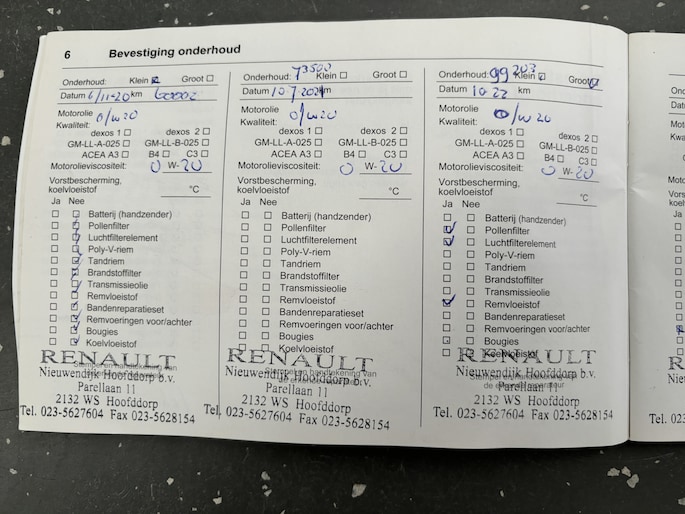 6 Bevestiging onderhoud
Onderhoud: Klein ☑ Groot ☐
Datum 6/11-20 km 60002
Motorolie 0/W20
Kwaliteit:
dexos 1 ☐ dexos 2 ☐
GM-LL-A-025 ☐ GM-LL-B-025 ☐
ACEA A3 ☐ B4 ☐ C3 ☐
Motorolieviscositeit: 0 W- 20
Vorstbescherming,
koelvloeistof °C
Ja Nee
Batterij (handzender)
Pollenfilter
Luchtfilterelement
Poly-V-riem
Tandriem
Brandstoffilter
Transmissieolie
Remvloeistof
Bandenreparatieset
Remvoeringen voor/achter
Bougies
Koelvloeistof
RENAULT
Nieuwendijk Hoofddorp b.v.
Parellaan 11
2132 WS Hoofddorp
Tel. 023-5627604 Fax 023-5628154
73500
Onderhoud: Klein ☐ Groot ☐
Datum 10-7-2021 km
Motorolie 0/W20
Kwaliteit:
dexos 1 ☐ dexos 2 ☐
GM-LL-A-025 ☐ GM-LL-B-025 ☐
ACEA A3 ☐ B4 ☐ C3 ☐
Motorolieviscositeit: 0 W- 20
Vorstbescherming,
koelvloeistof °C
Ja Nee
Batterij (handzender)
Pollenfilter
Luchtfilterelement
Poly-V-riem
Tandriem
Brandstoffilter
Transmissieolie
Remvloeistof
Bandenreparatieset
Remvoeringen voor/achter
Bougies
Koelvloeistof
RENAULT
Stempel en handtekening van
Nieuwendijk Hoofddorp b.v.
Parellaan 11
2132 WS Hoofddorp
Tel. 023-5627604 Fax 023-5628154
99203
Onderhoud: Klein ☐ Groot ☑
Datum 10-22 km
Motorolie 0/W20
Kwaliteit:
dexos 1 ☐ dexos 2 ☐
GM-LL-A-025 ☐ GM-LL-B-025 ☐
ACEA A3 ☐ B4 ☐ C3 ☐
Motorolieviscositeit: 0 W- 20
Vorstbescherming,
koelvloeistof °C
Ja Nee
Batterij (handzender)
Pollenfilter
Luchtfilterelement
Poly-V-riem
Tandriem
Brandstoffilter
Transmissieolie
Remvloeistof
Bandenreparatieset
Remvoeringen voor/achter
Bougies
Koelvloeistof
RENAULT
Nieuwendijk Hoofddorp b.v.
Parellaan 11
2132 WS Hoofddorp
Tel. 023-5627604 Fax 023-5628154